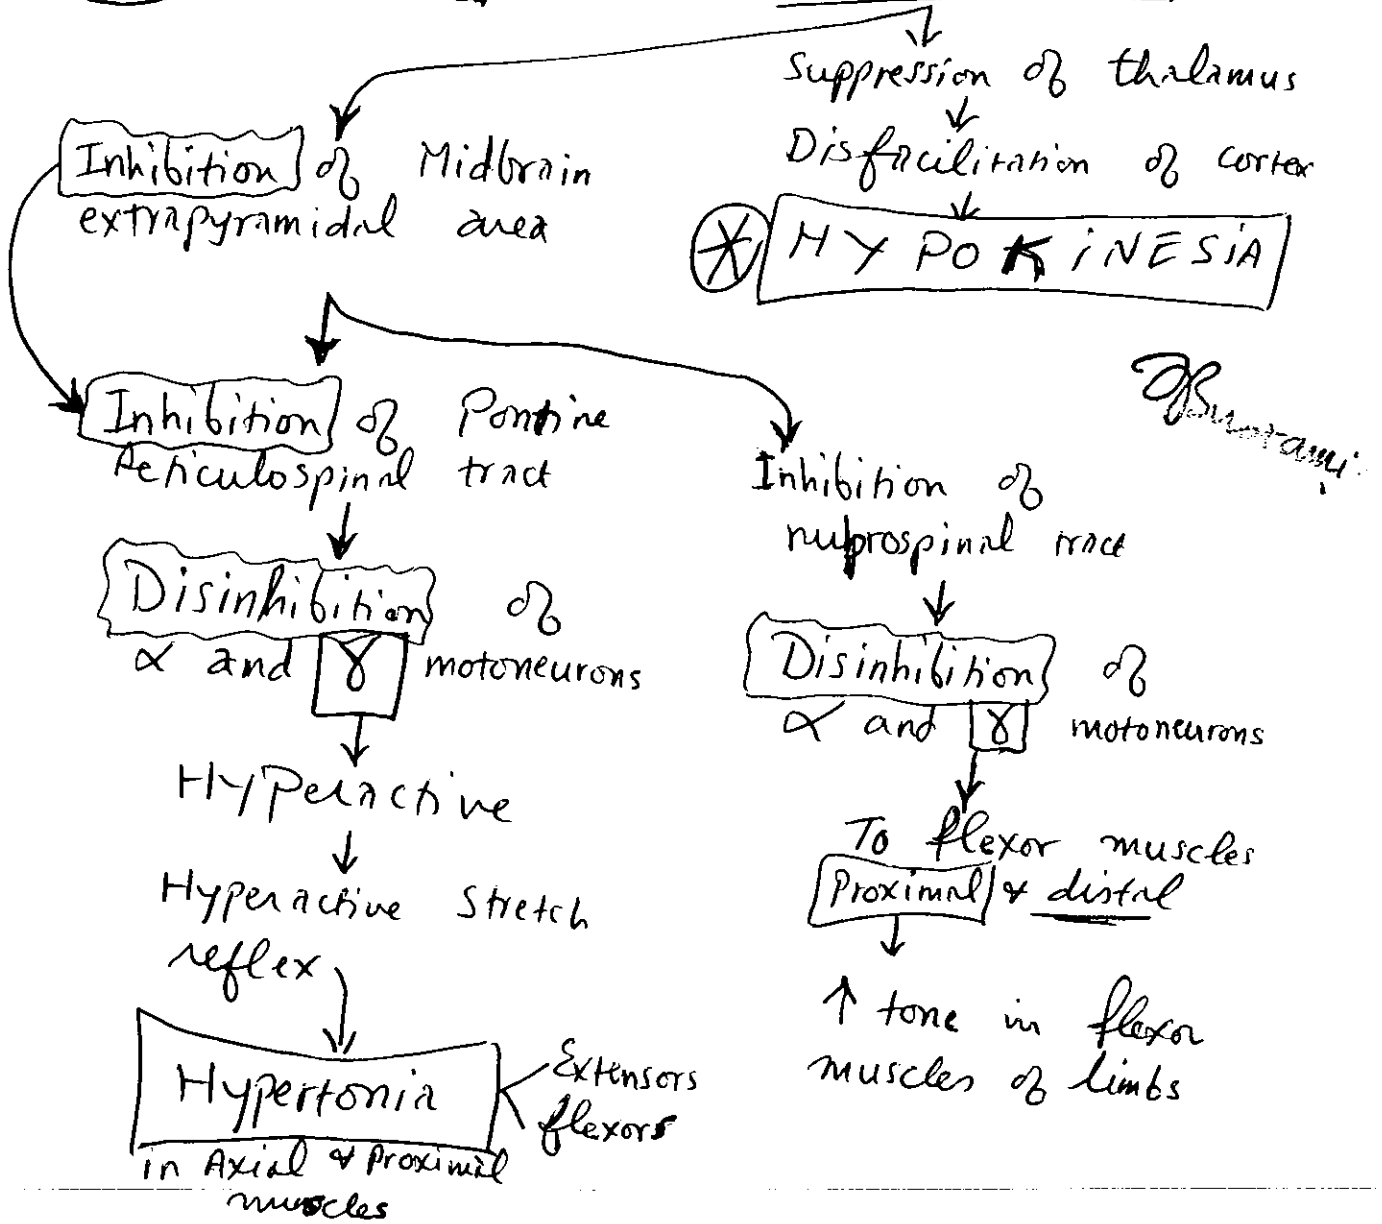 Suppression of thalamus
Disfacilitation of cortex
HYPOKINESIA
Inhibition of Midbrain
extrapyramidal area
Inhibition of Pontine
Reticulospinal tract
Disinhibition of
α and γ motoneurons
Hyperactive
Hyperactive Stretch
reflex
Hypertonia
Extensors
flexors
in Axial & Proximal
muscles
Inhibition of
rubrospinal tract
Disinhibition of
α and γ motoneurons
To flexor muscles
Proximal & distal
↑ tone in flexor
muscles of limbs